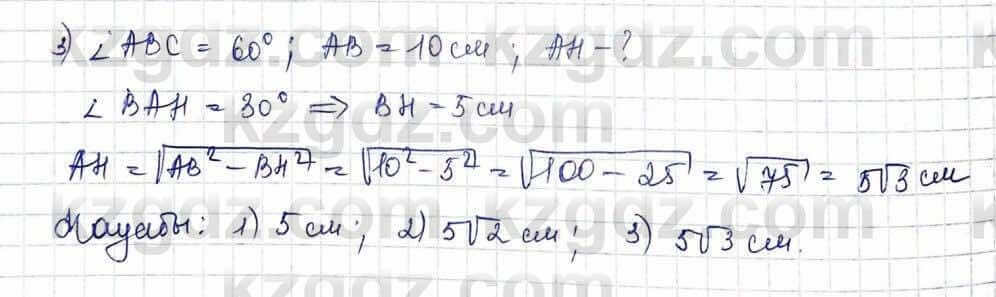 3) ∠ABC = 60°; AB = 10 см; AH - ?
∠BAH = 30° ⇒ BH = 5 см
AH = √(AB² - BH²) = √(10² - 5²) = √(100 - 25) = √75 = 5√3 см
Жауабы: 1) 5 см; 2) 5√2 см; 3) 5√3 см.
kzgdz.com